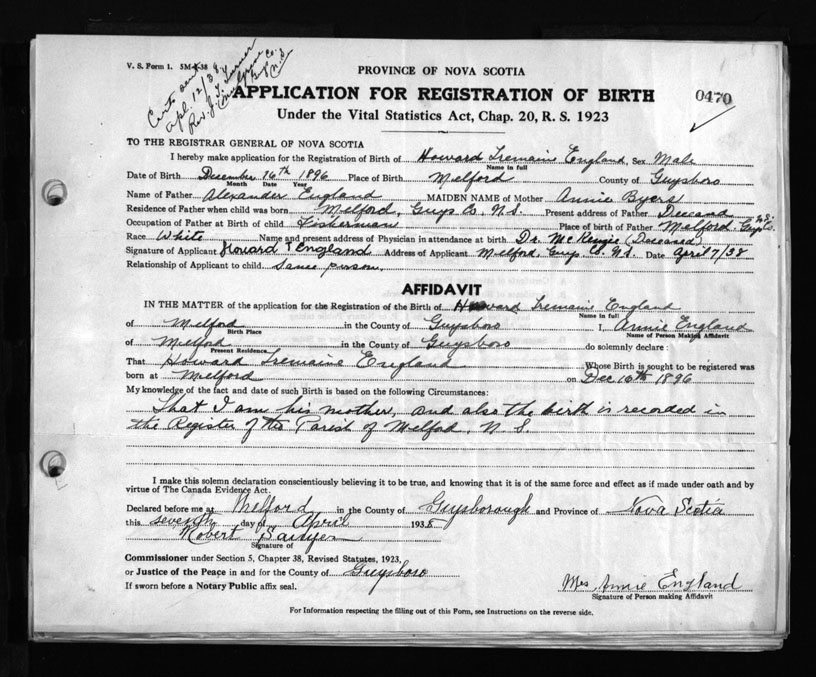 V. S. Form 1. 5M-4-38
Certs sent
Apl. 12/38
Rev. J. T. Turner
Co.
N.S.
PROVINCE OF NOVA SCOTIA
APPLICATION FOR REGISTRATION OF BIRTH
0470
Under the Vital Statistics Act, Chap. 20, R. S. 1923
TO THE REGISTRAR GENERAL OF NOVA SCOTIA
I hereby make application for the Registration of Birth of Howard Tremaine England Sex Male
Name in full
Date of Birth December 16th 1896 Place of Birth Melford County of Guysboro
Month Date Year
Name of Father Alexander England MAIDEN NAME of Mother Annie Byers
Residence of Father when child was born Melford, Guys Co. N.S. Present address of Father Deceased
Occupation of Father at Birth of child Fisherman Place of birth of Father Melford Guys Co. N.S.
Race White Name and present address of Physician in attendance at birth Dr. McKenzie (Deceased)
Signature of Applicant Howard T England Address of Applicant Melford, Guys. Co. N.S. Date April 7/38
Relationship of Applicant to child same person.
AFFIDAVIT
IN THE MATTER of the application for the Registration of the Birth of Howard Tremaine England
Name in full
of Melford in the County of Guysboro I, Annie England
Birth Place Name of Person Making Affidavit
of Melford in the County of Guysboro do solemnly declare :
Present Residence
That Howard Tremaine England Whose Birth is sought to be registered was
born at Melford on Dec 16th 1896
My knowledge of the fact and date of such Birth is based on the following Circumstances:
That I am his mother, and also the birth is recorded in
the Register of the Parish of Melford, N. S.
I make this solemn declaration conscientiously believing it to be true, and knowing that it is of the same force and effect as if made under oath and by
virtue of The Canada Evidence Act.
Declared before me at Melford in the County of Guysborough and Province of Nova Scotia
this seventh day of April 1938
Robert
Signature of
Commissioner under Section 5, Chapter 38, Revised Statutes, 1923,
or Justice of the Peace in and for the County of Guysboro
If sworn before a Notary Public affix seal.
Mrs Annie England
Signature of Person making Affidavit
For Information respecting the filling out of this Form, see Instructions on the reverse side.